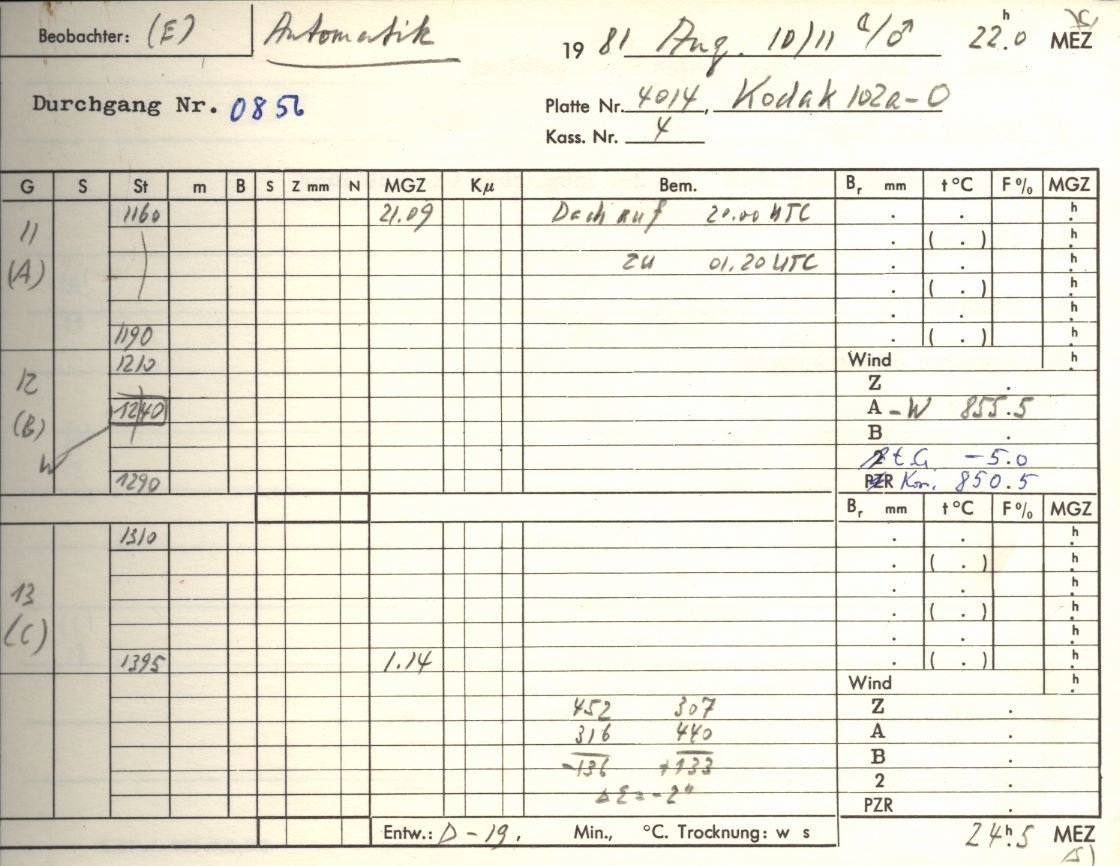 Beobachter: (E) Automatik 19 81 Aug. 10/11 22.0 h MEZ
Durchgang Nr. 0856 Platte Nr. 4014, Kodak 102a-O
Kass. Nr. 4
G S St m B S Z mm N MGZ Kμ Bem. Br mm t °C F % MGZ
11 1160 21.09 Dach auf 20.00 UTC . . h
. ( . ) h
(A) zu 01.20 UTC . . h
. ( . ) h
. . h
1190 . ( . ) h
1210 Wind h
12 Z .
1240 A - W 855.5
(B) B .
W 2 t.G. -5.0
1290 PZR Kor. 850.5
Br mm t °C F % MGZ
1310 . . h
. ( . ) h
13 . . h
(C) . ( . ) h
. . h
1395 1.14 . ( . ) h
Wind h
452 307 Z .
316 440 A .
-136 +133 B .
ΔΣ = -2" 2
PZR .
Entw.: D-19. Min., °C. Trocknung: w s 24h.5 MEZ